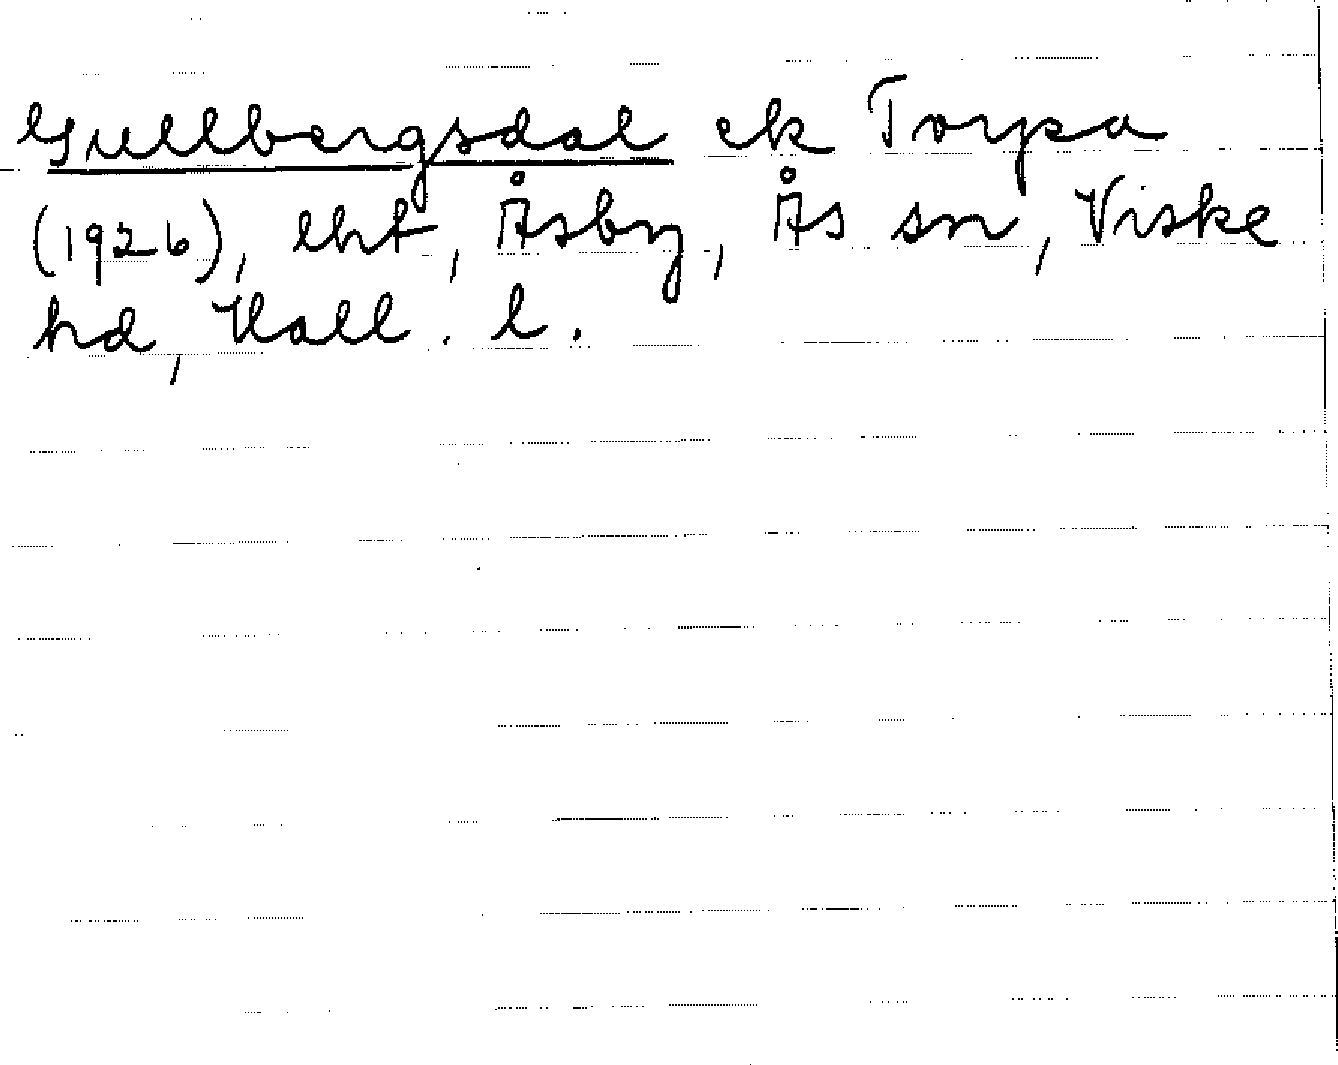 Gullbergsdal ek Torpa
(1926), lht, Åsby, Ås sn, Viske
hd, Hall. l.